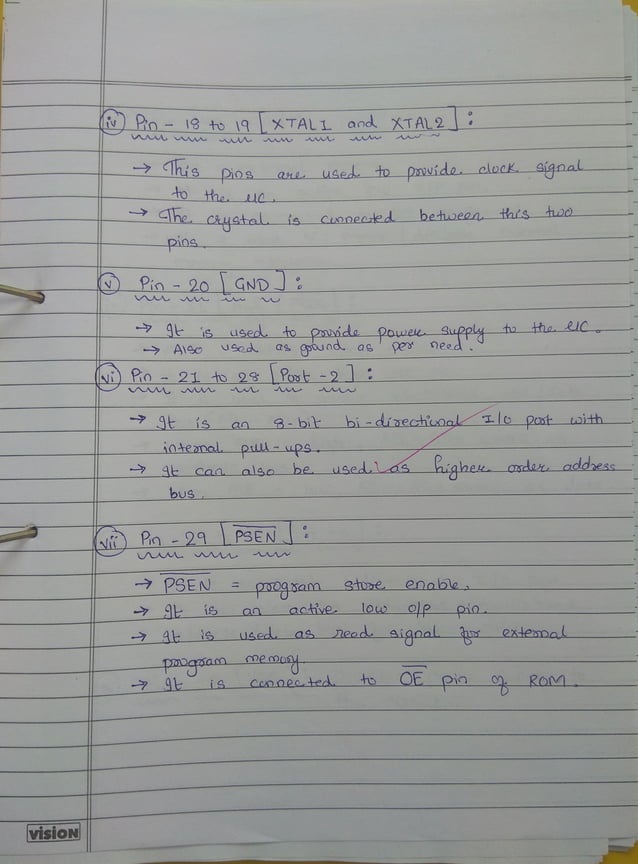 iv Pin - 18 to 19 [XTAL1 and XTAL2] :
→ This pins are used to provide clock signal
to the uc.
→ The crystal is connected between this two
pins.
v Pin - 20 [GND] :
→ It is used to provide power supply to the uc.
→ Also used as ground as per need.
vi Pin - 21 to 28 [Port - 2] :
→ It is an 8-bit bi-directional I/O port with
internal pull-ups.
→ It can also be used as higher order address
bus.
vii Pin - 29 [P̅S̅E̅N̅] :
→ P̅S̅E̅N̅ = program store enable.
→ It is an active low o/p pin.
→ It is used as read signal for external
program memory.
→ It is connected to O̅E̅ pin of ROM.
vision